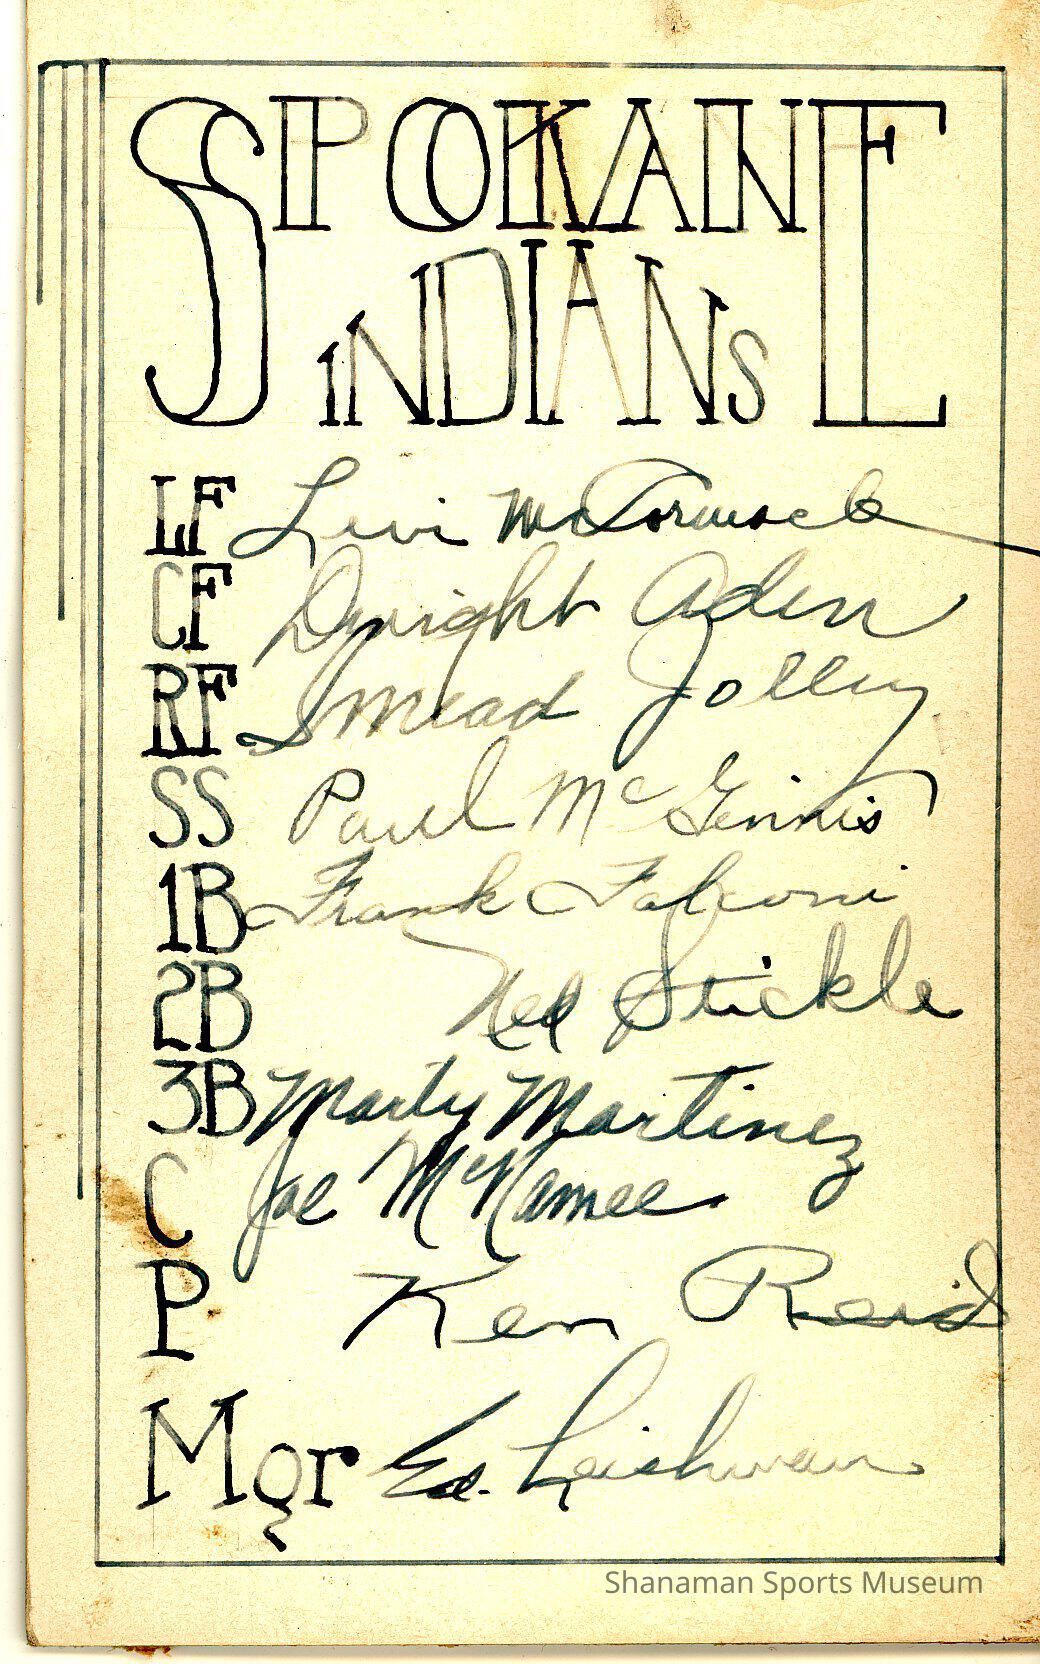 SPOKANE
INDIANS
LF Levi McCormack
CF Dwight Aden
RF Smead Jolley
SS Paul McGinnis
1B Frank Falconi
2B Ned Stickle
3B Marty Martinez
C Joe McNamee.
P Ken Reid
Mgr Ed. Leishman
Shanaman Sports Museum